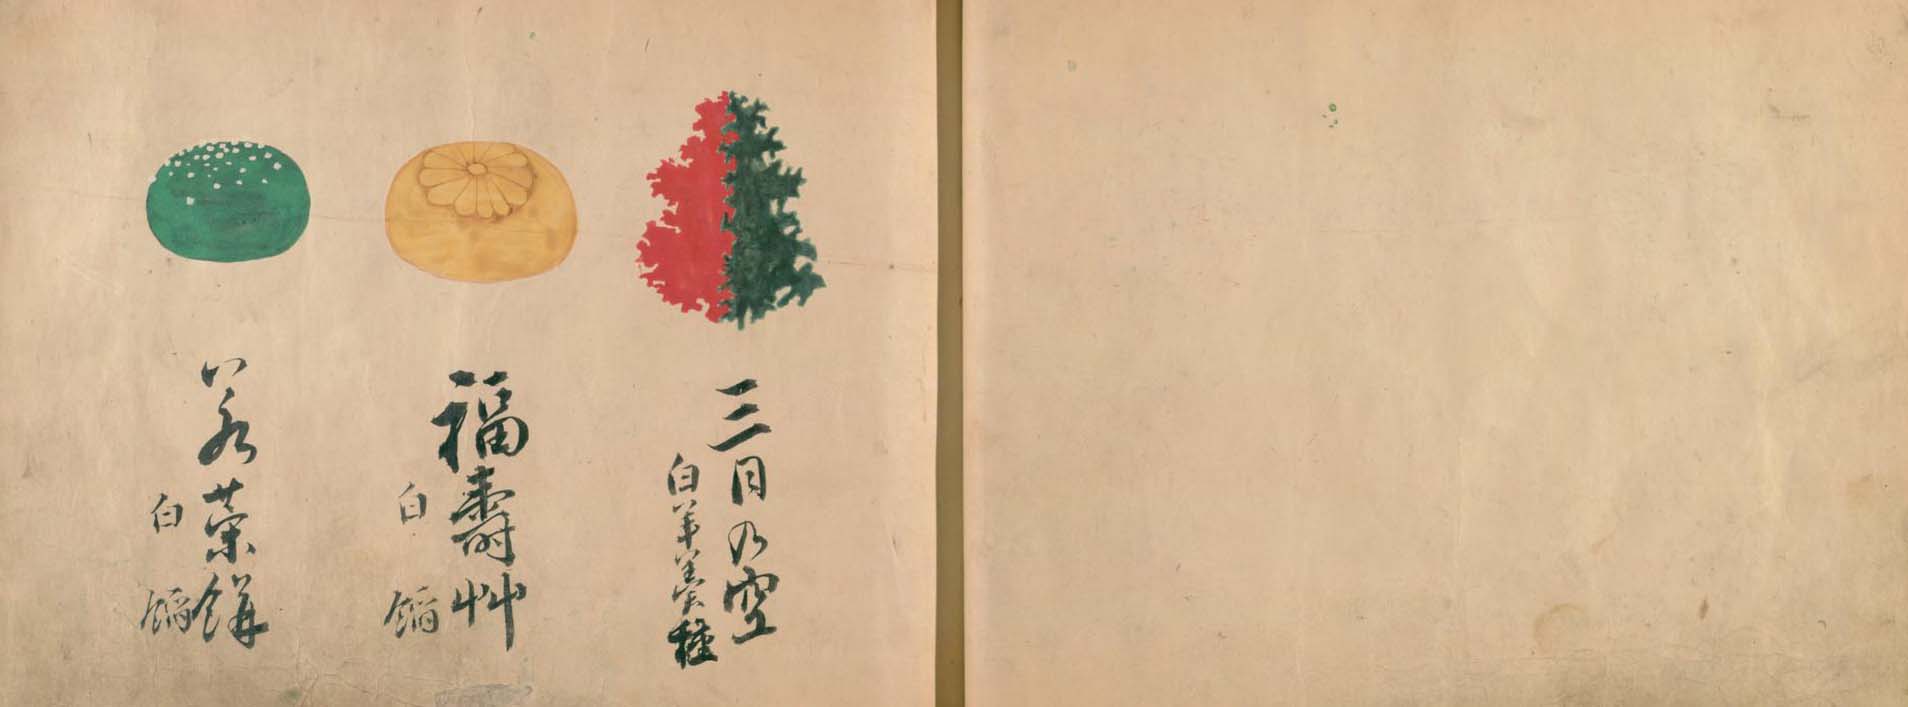 三月乃空
白羊羹種
福壽艸
白 餡
若菜餅
白 餡